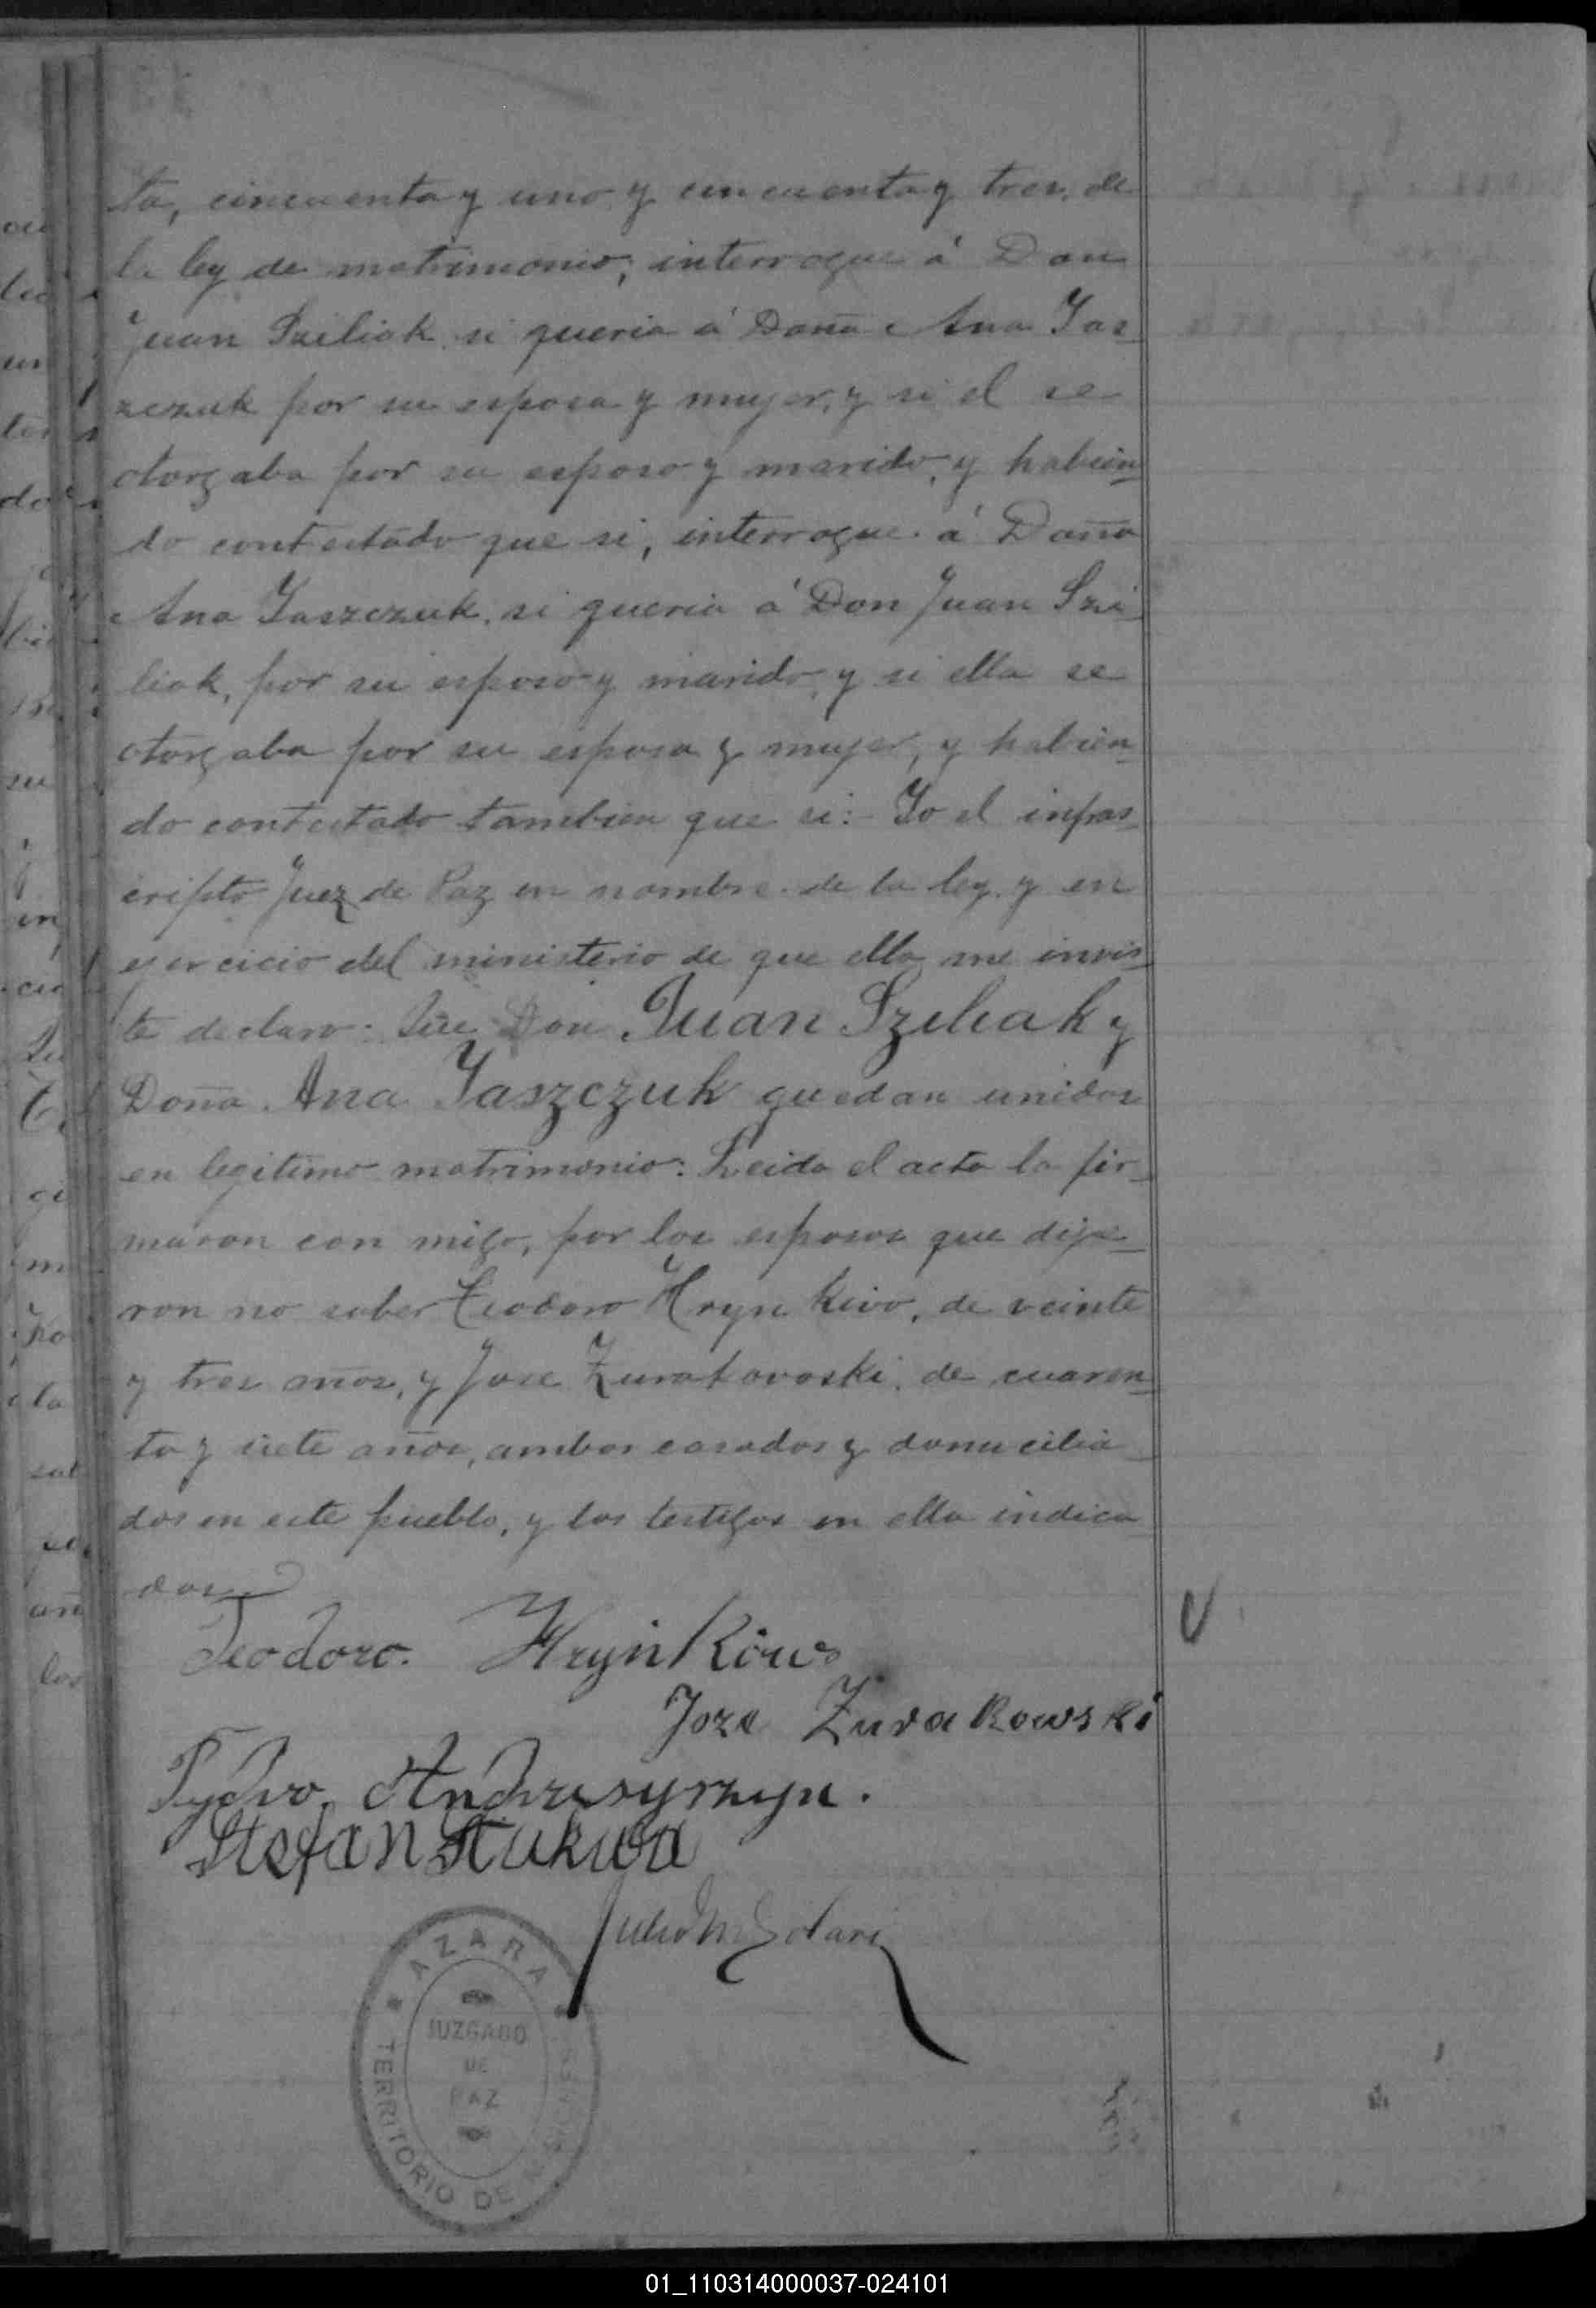 ta, cincuenta y uno y cincuenta y tres, de
la ley de matrimonio, interrogue á Don
Juan Sziliak si queria á Doña Ana Jas
zczuk por su esposa y mujer, y si el se
otorgaba por su esposo y marido, y habien
do contestado que si, interrogue á Doña
Ana Jaszczuk, si queria á Don Juan Szi
liak, por su esposo y marido, y si ella se
otorgaba por su esposa y mujer, y habien
do contestado tambien que si:- Yo el infras
cripto Juez de Paz en nombre de la ley y en
ejercicio del ministerio de que ella me invis
te declaro: Que Don Juan Sziliak y
Doña Ana Jaszczuk quedan unidos
en legitimo matrimonio: Leida el acta la fir
maron con migo, por los esposos que dije
ron no saber Teodoro Hrynkiw, de veinte
y tres años, y Jose Zurakovoski, de cuaren
ta y siete años, ambos casados y domicilia
dos en este pueblo, y los testigos en ella indica
dos
Teodoro. HrynKiw
Joze Zurakowski
Stefan
Julio Solari
AZARA
JUZGADO
DE
PAZ
TERRITORIO DE MISIONES
01_110314000037-024101